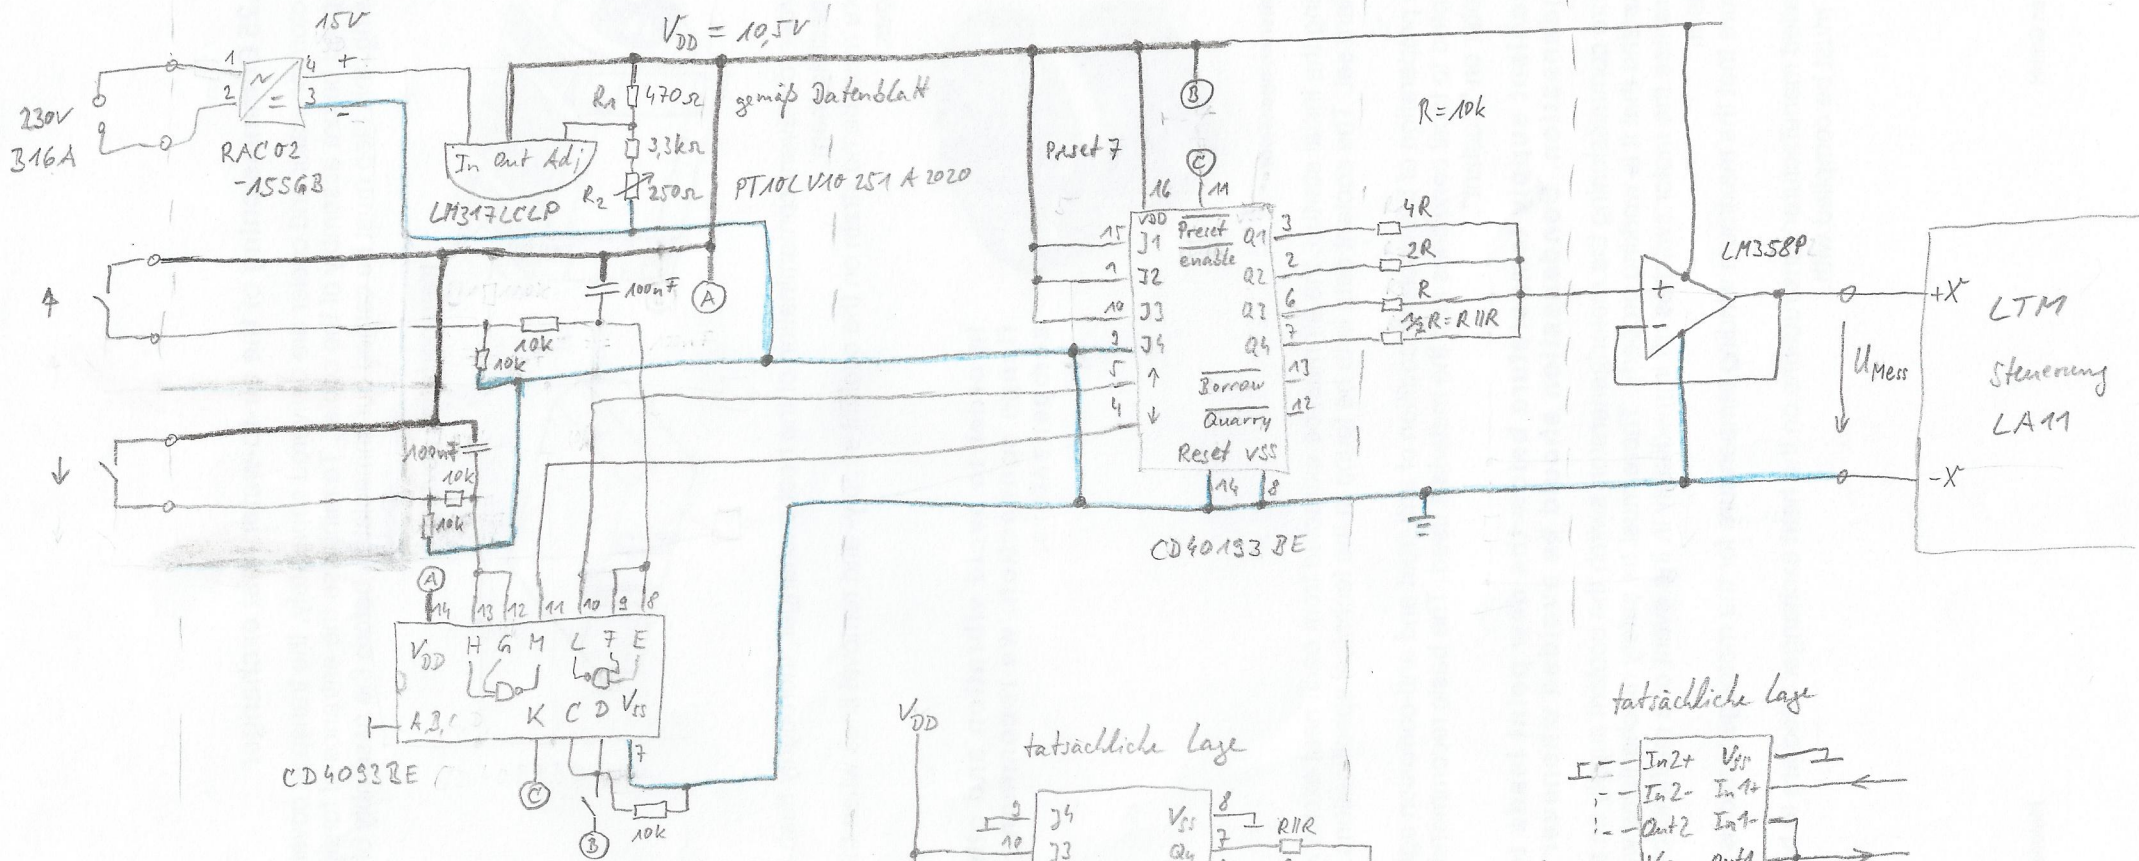 15V
V_DD = 10,5V
230V
B16A
1
2
4 +
3 -
~
=
RAC02
-15SGB
In Out Adj
LM317LCLP
R1 470Ω
3,3kΩ
R2 250Ω
gemäß Datenblatt
PT10LV10 251 A2020
Preset 7
B
C
R=10k
16
11
VDD
Preset
enable
15 J1 Q1 3 4R
1 J2 Q2 2 2R
10 J3 Q3 6 R
9 J4 Q4 7 ½R=R||R
5 ↑ Borrow 13
4 ↓ Quarry 12
Reset VSS
14 8
CD40193BE
LM358P
+
-
U Mess
+X
-X
LTM
Steuerung
LA11
↑
100nF
A
10k
10k
↓
100nF
10k
10k
A
14 13 12 11 10 9 8
VDD H G M L F E
A,B,
K C D VSS
7
CD4093BE
C
B
10k
VDD
tatsächliche Lage
9 J4 VSS 8
10 J3 Q4 7
R||R
tatsächliche Lage
In2+ VSS
In2- In1+
Out2 In1-
Out1